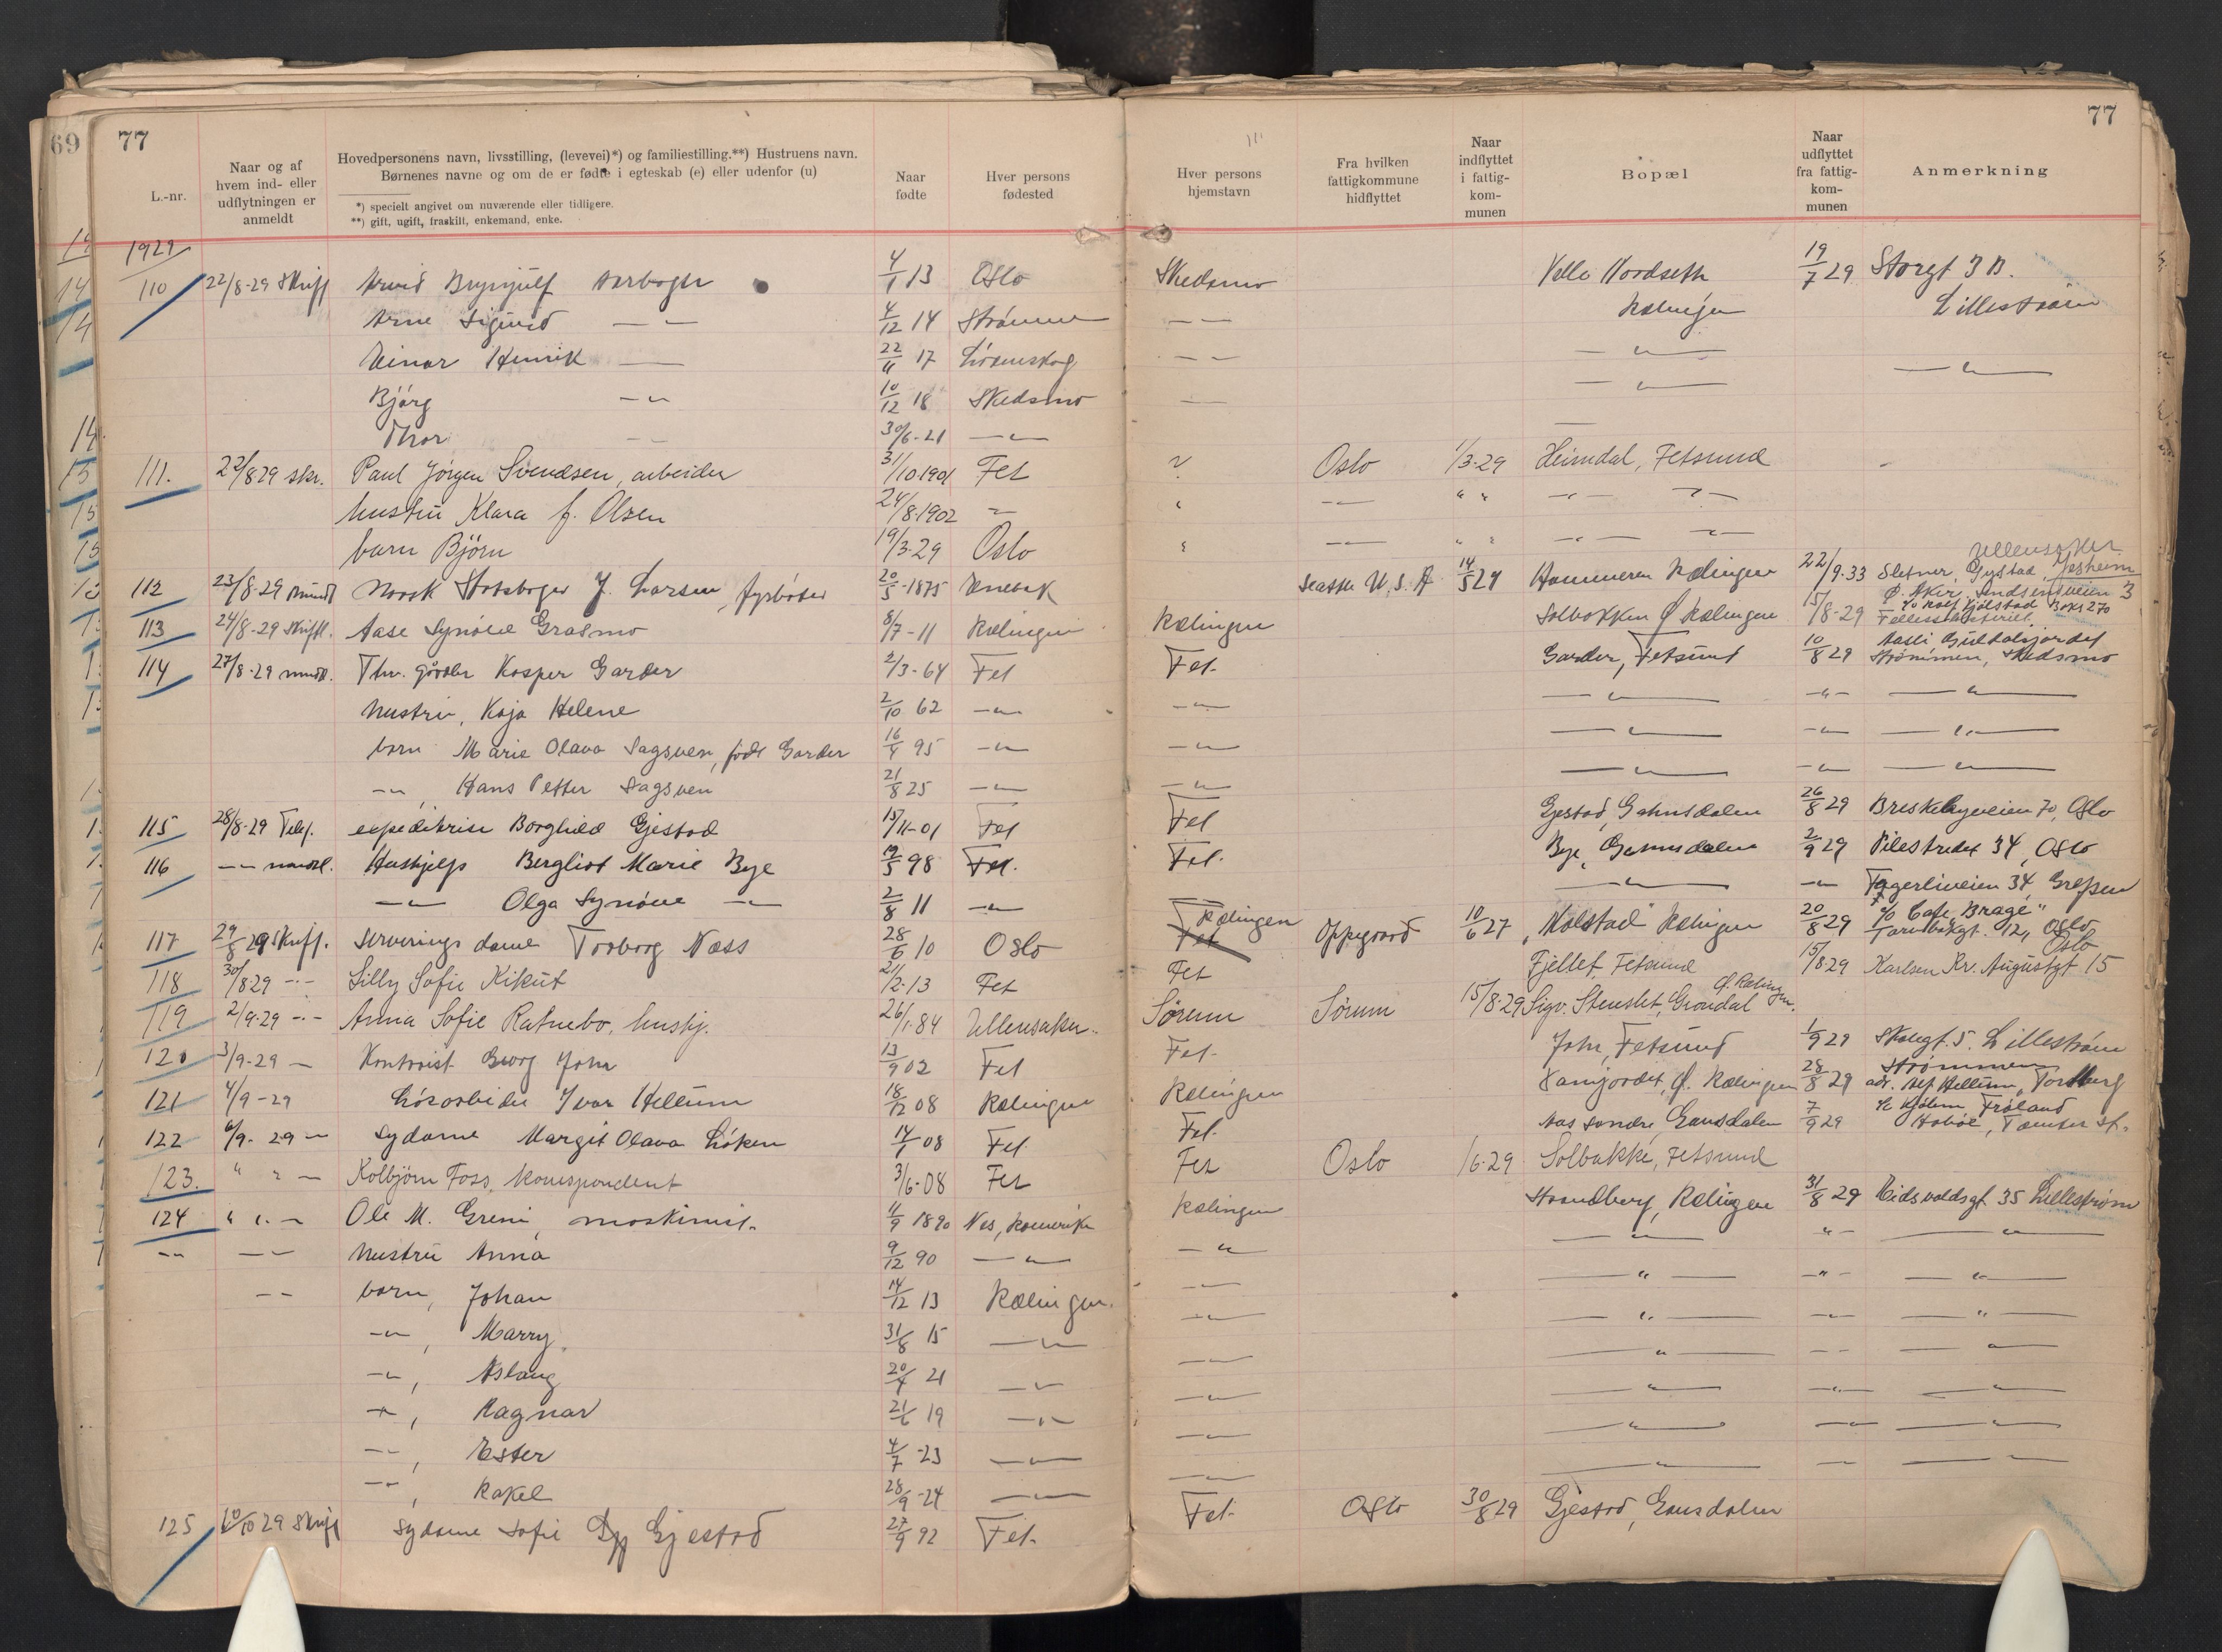 69
77
77
L.-nr.
Naar og af hvem ind- eller udflytningen er anmeldt
Hovedpersonens navn, livsstilling, (levevei)*) og familiestilling.**) Hustruens navn.
Børnenes navne og om de er fødte i egteskab (e) eller udenfor (u)
*) specielt angivet om nuværende eller tidligere.
**) gift, ugift, fraskilt, enkemand, enke.
Naar fødte
Hver persons fødested
Hver persons hjemstavn
Fra hvilken fattigkommune hidflyttet
Naar indflyttet i fattig-kom-munen
Bopæl
Naar udflyttet fra fattig-kom-munen
Anmerkning
1929
110 22/8-29 Skriff Arvid Brynjulf 4/1 13 Oslo Skedsmo Nordseth 19/7 29 Storgt 3 B.
Arne Sigurd — 4/12 14 Strømmen — Rælingen Lillestrøm
Einar Henrik — 22/11 17 Lørenskog — — " — — " —
Bjørg — " 10/12 18 Skedsmo — — " —
Thor — 30/6-21 — " —
111. 22/8 29 skr. Paul Jørgen Svendsen, arbeider 31/10.1901 Fet Oslo 1/3-29 Heimdal, Fetsund
hustru Klara f. Olsen 24/8.1902 — " — — " " — " —
barn Björn 19/3-29 Oslo " — " " — " —
112 23/8-29 mundt Norsk Statsborger J. Larsen, fyrbøter 20/5-1875 Enebak Seattle U.S.A 14/5 29 Hammeren Rælingen 22/9.33 Sletner, Gystad, Jessheim Ullensaker
113 24/8-29 Skriftl. Aase Synöve Grasmo 8/7-11 Rælingen Rælingen Solbakken Ø Rælingen 15/8-29
114 27/8-29 mundl. Thv. gårdbr Kasper Garder 2/3-64 Fet Fet. Garder, Fetsund 10/8 29 Strömmen, Skedsmo
hustru, Kaja Helene 2/10 62 — " — — " — — " — — " — — " —
barn Marie Olava Sagsveen, född Garder 16/4 95 — " — — " — — " — — " — — " —
— " , Hans Petter Sagsveen 21/8 25 — " — — " — — " — — " — — " —
115 28/8-29 Telef. expeditrise Borghild Gjestad 15/11-01 Fet Fet Gjestad, Gansdalen 26/8 29 Breskebyveien 70, Oslo
116 — " — mundl. Hushjelp Bergliot Marie Bye 19/5 98 Fet. Fet. Bye, Gansdalen 2/9 29 Pilestredet 34, Oslo
— " — Olga Synöve — " — 2/8 11 — " — — " — — " — Fagerliveien 34, Grefsen
117 29/8 29 Skriff. Serveringsdame Torborg Næss 28/6 10 Oslo Fet Rælingen Oppegaard 10/6 27 "Molstad" Rælingen 20/8 29 c/o Cafe "Brage" 12, Oslo
118 30/8 29 — " — Lilly Sofie Kikut 21/2-13 Fet Fet Fjellet, Fetsund 15/8-29 Karlsen Kr. Augustgt 15 Oslo
119 2/9-29 — " — Anna Sofie Ratnebo, hushj. 26/1-84 Ullensaker. Sørum Sørum 15/8-29 Sigv. Stenslet, Grøndal Ø. Rælingen.
120 3/9-29 — Kontorist Georg John 13/9 02 Fet Fet. John, Fetsund 1/9 29 Skougt. 5. Lillestrøm
121 4/9-29 Lösarbeider Ivar Hellum 18/12 08 Rælingen Rælingen Ø. Rælingen 28/8 29 Strømmen adr. Alf Hellum,
122 6/9-29 — Sydame Margit Olava Löken 14/1 08 Fet Fet. Aas søndre, Gansdalen 7/9 29 Frøland
123. " " — Kolbjørn Foss, korrespondent 3/6-08 Fet Fet Oslo 1/6-29 Solbakke, Fetsund
124 " " — Ole M. Greni, maskinist. 11/9 1890 Nes, Romerike Rælingen Strandberg, Rælingen 31/8 29 Eidsvoldsgt 35 Lillestrøm
— " — — " — hustru Anna 9/12 90 — " — — " — — " — — " — — " —
— " — barn, Johan 14/12 13 Rælingen. — " — — " — — " — — " —
— " , Marry, 31/8 15 — " — — " — — " — — " — — " —
— " , Aslaug 20/4 21 — " — — " — — " — — " — — " —
— " , Ragnar 21/6 19 — " — — " — — " — — " — — " —
— " , Ester 4/7-23 — " — — " — — " — — " — — " —
— " , Rakel 28/9-24 — " — — " — — " — — " — — " —
125 10/10 29 Skrift Sydame Sofie Gjestad 27/9 92 Fet. Fet. Oslo 30/8 29 Gjestad, Gansdalen